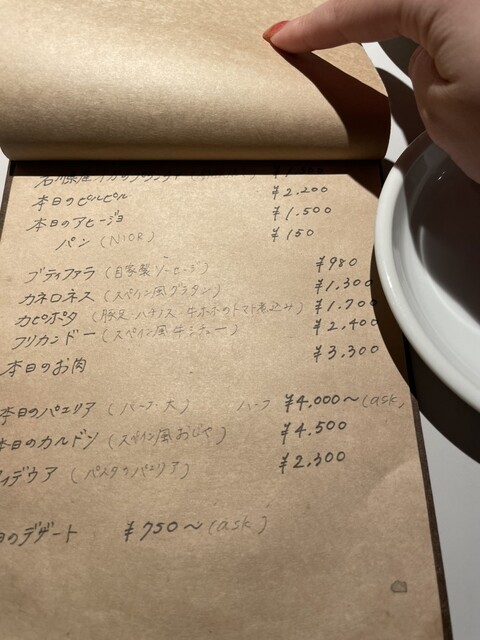 本日のピルピル ¥2.200
本日のアヒージョ ¥1.500
パン (NIOR) ¥150
ブティファラ (自家製ソーセージ) ¥980
カネロネス (スペイン風グラタン) ¥1.300
カピポタ (豚足・ハチノス・牛ホホのトマト煮込み) ¥1.700
フリカンドー (スペイン風牛シチュー) ¥2.400
本日のお肉 ¥3.300
本日のパエリア (ハーフ・大) ハーフ ¥4.000～(ask)
本日のカルドソ (スペイン風おじや) ¥4.500
ィデウア (パスタのパエリア) ¥2.300
日のデザート ¥750～(ask)